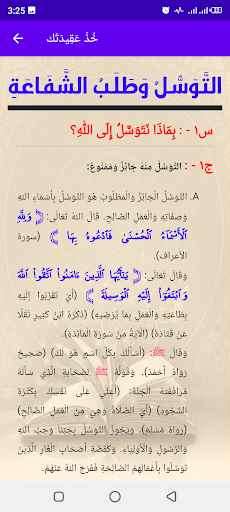 3:25
خُذْ عَقِيدَتَك
التَّوَسُّلُ وَطَلَبُ الشَّفَاعَةِ
س١ - : بِمَاذَا نَتَوَسَّلُ إِلَى اللهِ؟
ج١ - : التَّوَسُّلُ مِنْهُ جَائِزٌ وَمَمْنُوعٌ:
A. التَّوَسُّلُ الْجَائِزُ وَالْمَطْلُوبُ هُوَ التَّوَسُّلُ بِأَسْمَاءِ اللهِ
وَصِفَاتِهِ وَالْعَمَلِ الصَّالِحِ. قَالَ اللهُ تَعَالَى: ﴿ وَلِلَّهِ
الْأَسْمَاءُ الْحُسْنَىٰ فَادْعُوهُ بِهَا ﴾ (سورة
الأعراف).
وَقَالَ تَعَالَى: ﴿ يَٰٓأَيُّهَا الَّذِينَ ءَامَنُوا اتَّقُوا اللَّهَ
وَابْتَغُوٓا إِلَيْهِ الْوَسِيلَةَ ﴾ (أَيْ تَقَرَّبُوا إِلَيْهِ
بِطَاعَتِهِ وَالْعَمَلِ بِمَا يُرْضِيهِ) (ذَكَرَهُ ابْنُ كَثِيرٍ نَقْلًا
عَنْ قَتَادَةَ) (الْآيَةُ مِنْ سُورَةِ الْمَائِدَةِ).
وَقَالَ ﷺ: (أَسْأَلُكَ بِكُلِّ اسْمٍ هُوَ لَكَ) (صَحِيحٌ
رَوَاهُ أَحْمَدُ). وَقَوْلُهُ ﷺ لِلصَّحَابِيِّ الَّذِي سَأَلَهُ
مُرَافَقَتَهُ الْجَنَّةَ: (أَعِنِّي عَلَى نَفْسِكَ بِكَثْرَةِ
السُّجُودِ) (أَيْ الصَّلَاةُ وَهِيَ مِنَ الْعَمَلِ الصَّالِحِ)
(رَوَاهُ مُسْلِمٌ). وَيَجُوزُ التَّوَسُّلُ بِحُبِّنَا وَحُبِّ اللهِ
وَالرَّسُولِ وَالْأَوْلِيَاءِ. وَكَقِصَّةِ أَصْحَابِ الْغَارِ الَّذِينَ
تَوَسَّلُوا بِأَعْمَالِهِمُ الصَّالِحَةِ فَفَرَّجَ اللهُ عَنْهُمْ.